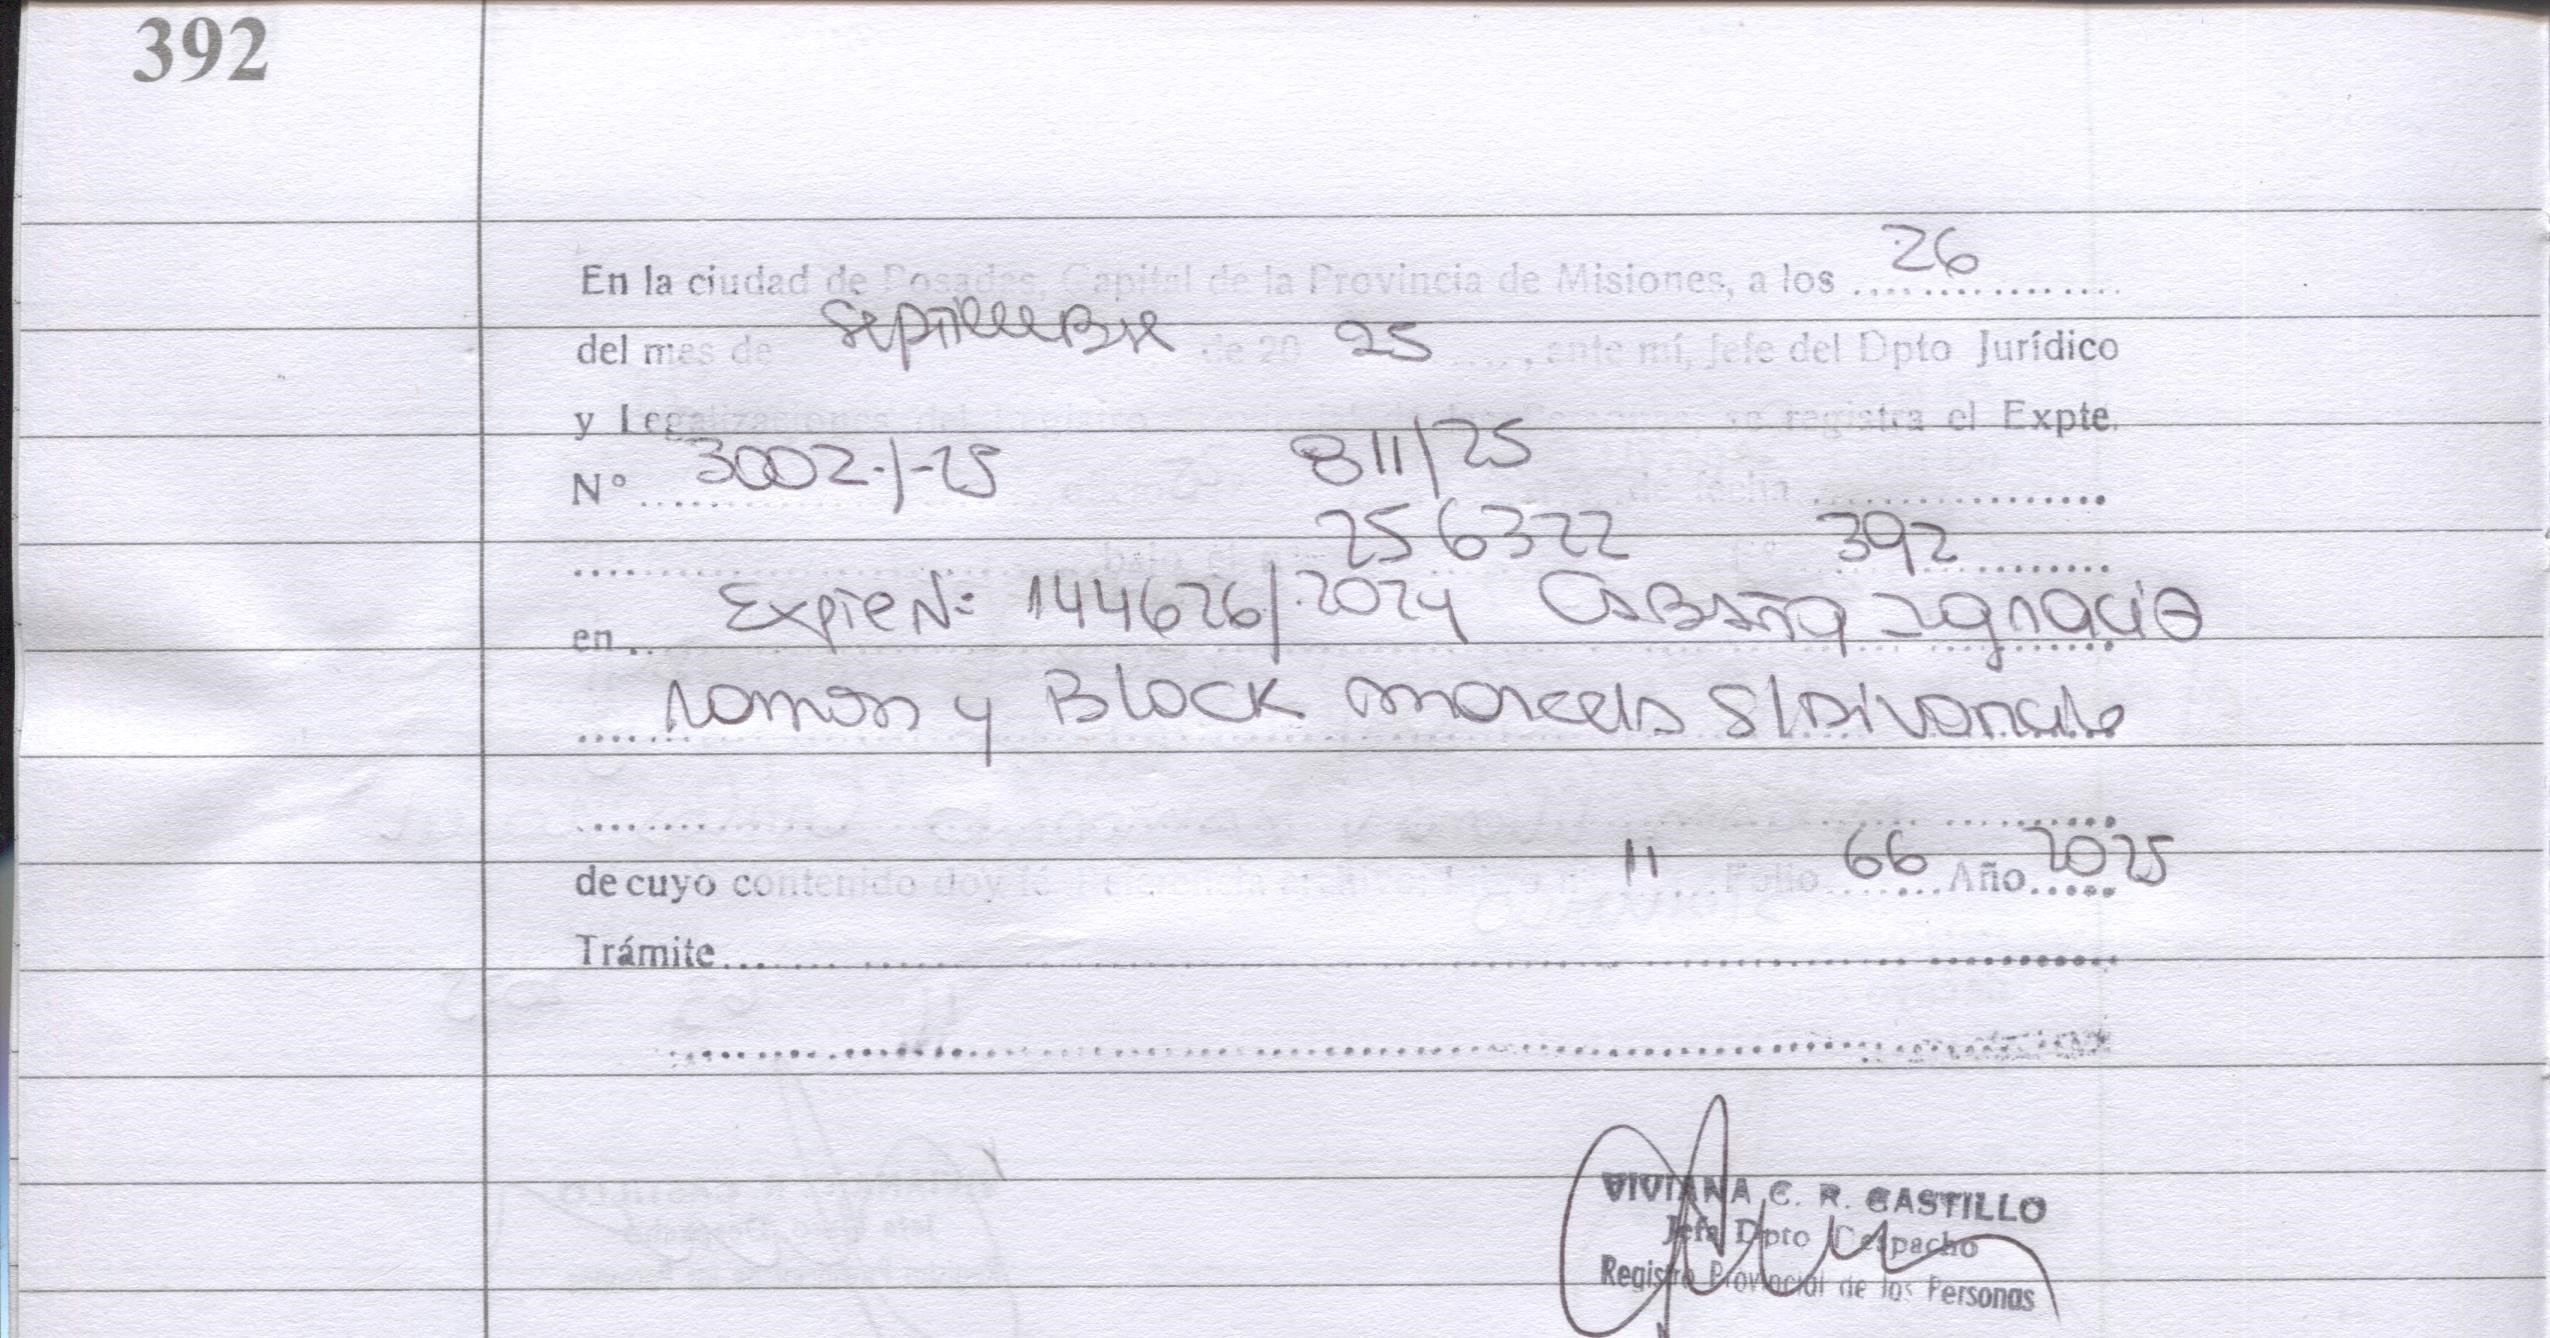 392
26
En la ciudad de Posadas, Capital de la Provincia de Misiones, a los
del mes de Septiembre de 20 25, ante mí, Jefe del Dpto Jurídico
y Legalizaciones del se registra el Expte.
N° 3002-/-25 811/25 de fecha
bajo el 256322 392
en Expte N: 144626/2024 Cabaña Ignacio
Ramon y Block Marcela S/Divorcio
de cuyo contenido doy 11 Folio 66 Año 2025
Trámite
VIVIANA C. R. CASTILLO
Jefa Dpto Despacho
Registro Provincial de las Personas